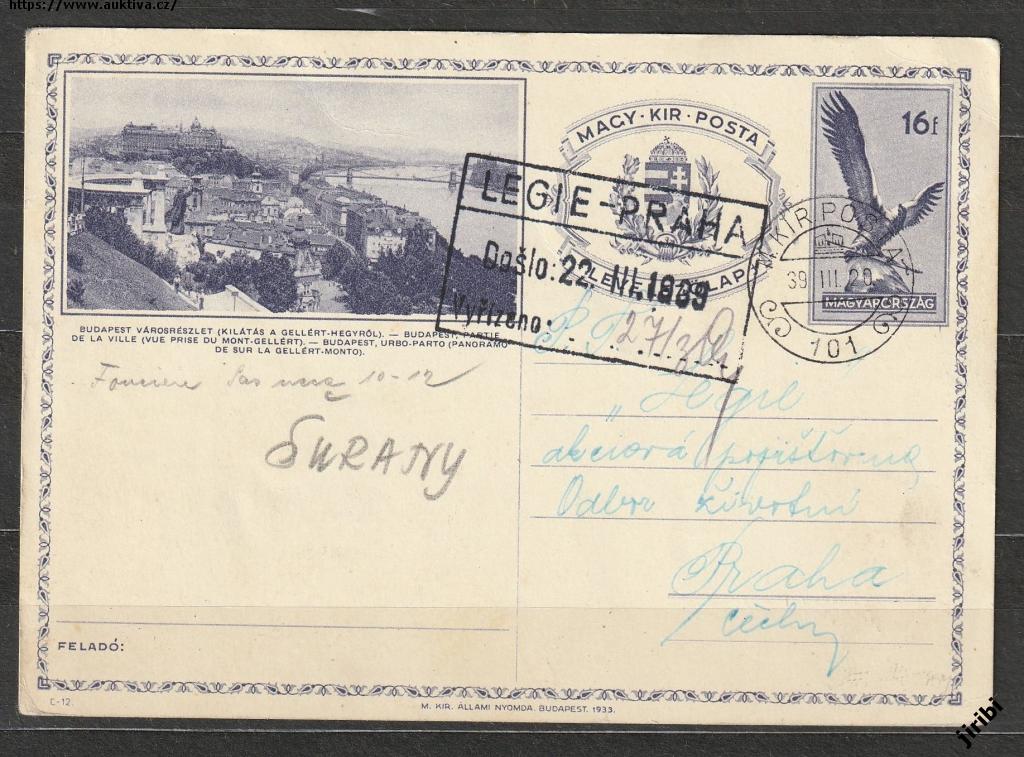 https://www.auktiva.cz/
MAGY·KIR·POSTA
LEVELEZŐLAP
16 f
MAGYARORSZÁG
M. KIR. POSTA
39 III. 20
101
LEGIE-PRAHA
Došlo: 22. III. 1939
Vyřízeno:
27/3
BUDAPEST VÁROSRÉSZLET (KILÁTÁS A GELLÉRT-HEGYRŐL). — BUDAPEST, PARTIE
DE LA VILLE (VUE PRISE DU MONT-GELLÉRT). — BUDAPEST, URBO-PARTO (PANORAMO
DE SUR LA GELLÉRT-MONTO).
10-12
ŠURANY
P. T.
„Legie
akciová pojišťovna
Odbor životní
Praha
Čechy
FELADÓ:
C-12.
M. KIR. ÁLLAMI NYOMDA. BUDAPEST. 1933.
jiribi